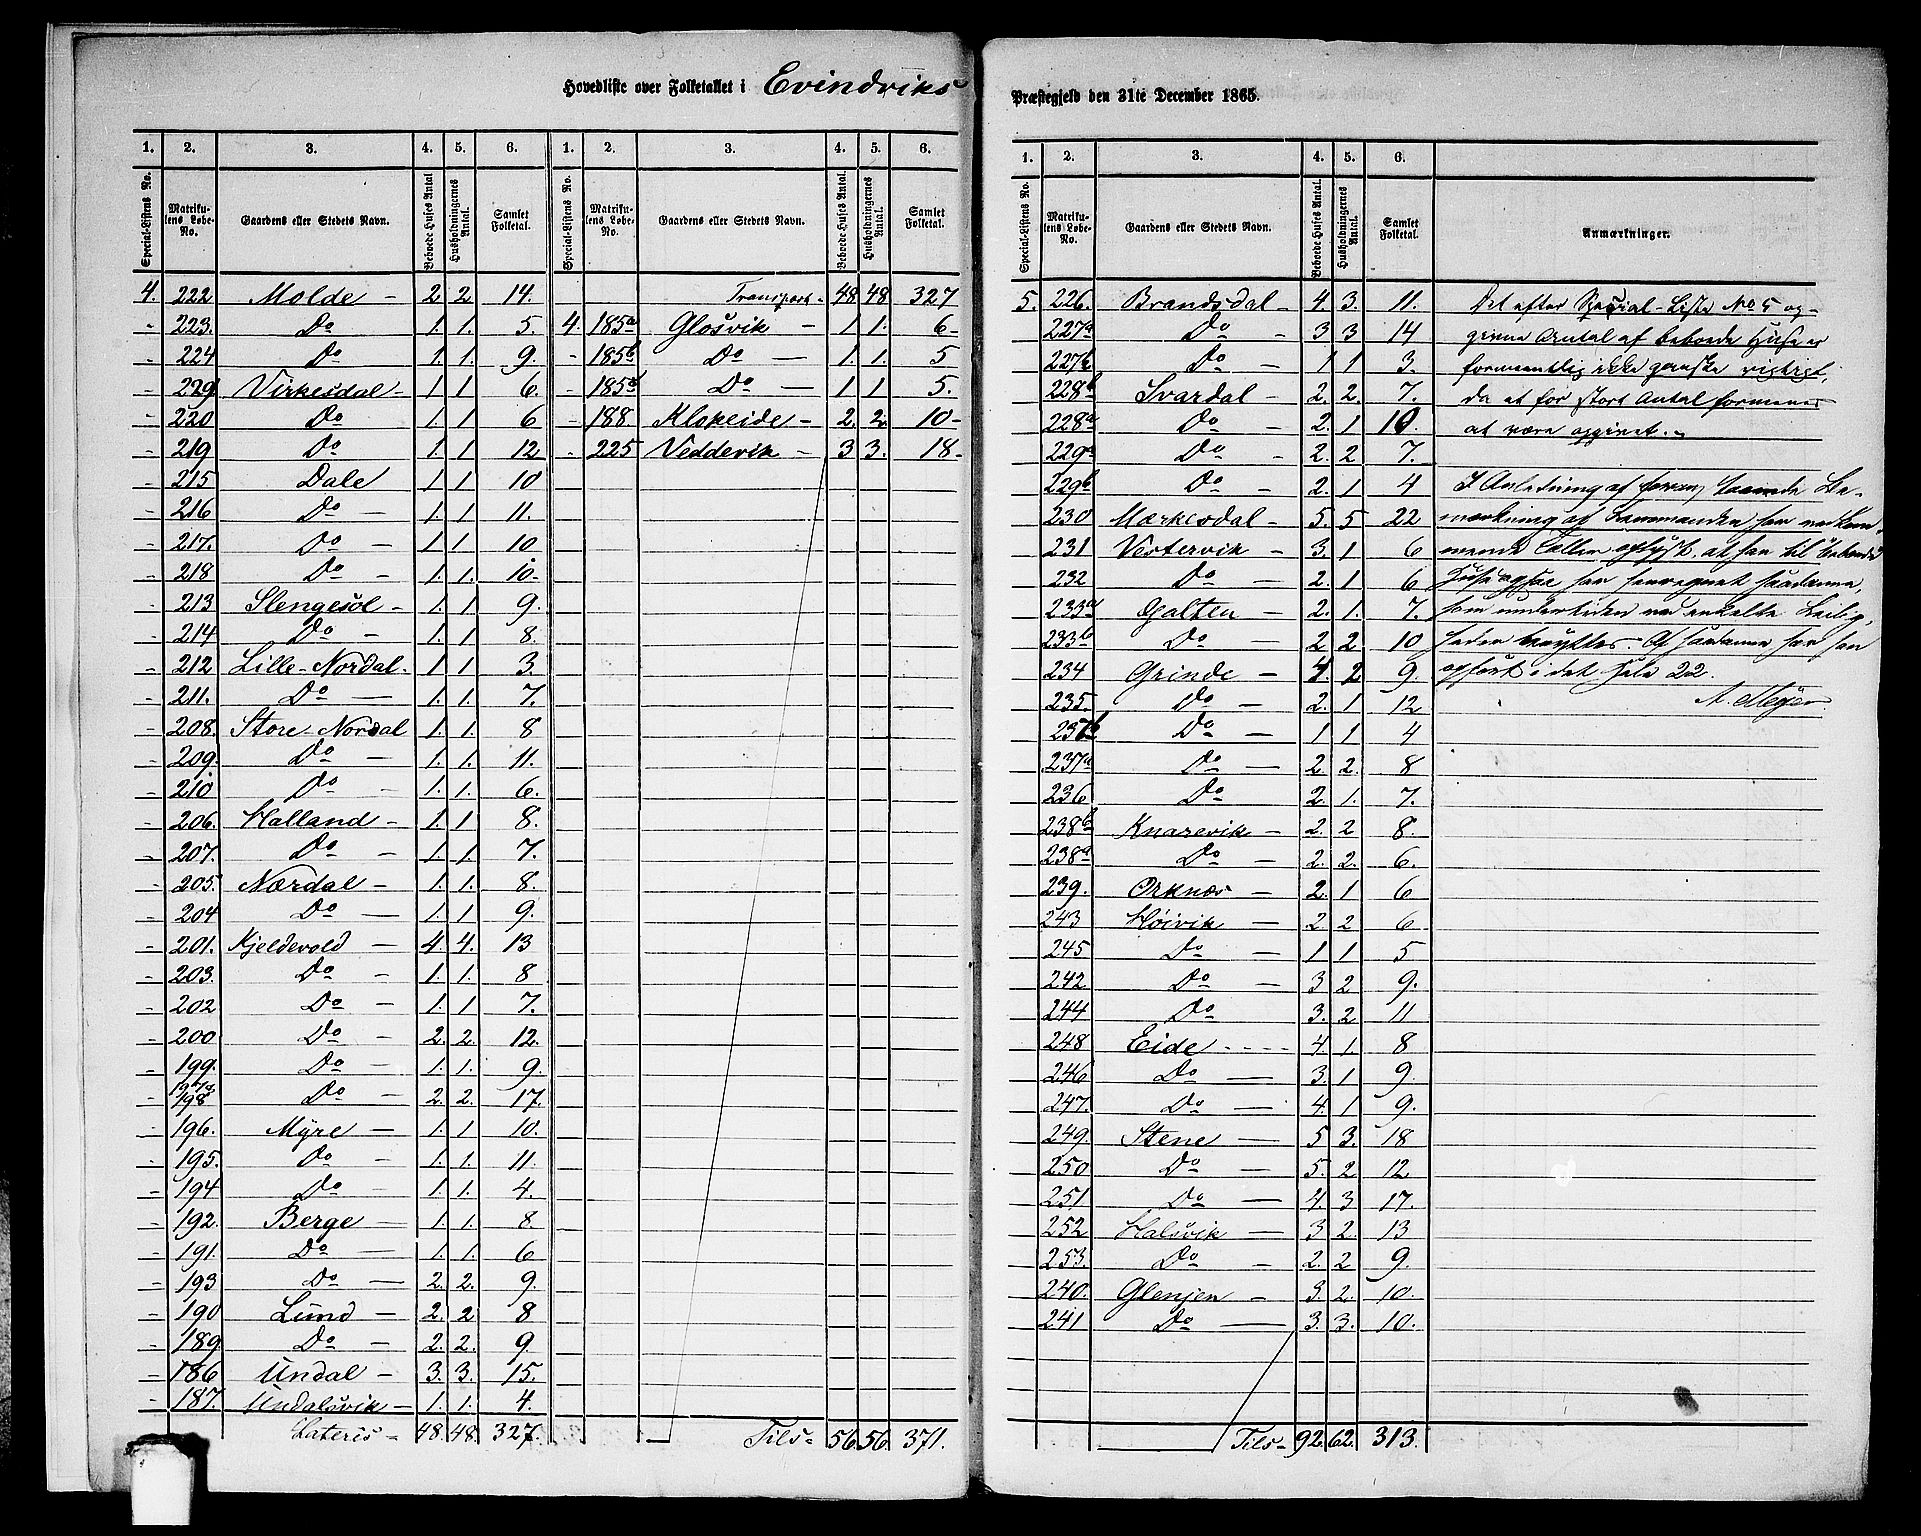 Hovedliste over Folketallet i Evindviks
1. 2. 3. 4. 5. 6. 1. 2. 3. 4. 5. 6.
Special-Listens No. Matrikulens Løbe-No. Gaardens eller Stedets Navn. Beboede Huses Antal Husholdningernes Antal. Samlet Folketal. Special-Listens No. Matrikulens Løbe-No. Gaardens eller Stedets Navn. Beboede Huses Antal. Husholdningernes Antal. Samlet Folketal.
4. 222 Molde - 2 2 14. Transport - 48 48 327
- 223. Do 1. 1. 5. 4. 185a Glosvik - 1 1. 6-
- 224 Do - 1. 1. 9. - 185b Do - 1. 1. 5
- 221 Virkesdal - 1 1 6. - 185c Do - 1 1 5.
- 220 Do 1 1 6 - 188 Klokeide - 2. 2. 10-
- 219 Do 1 1 12 - 225 Veddevik - 3 3. 18-
- 215 Dale 1 1 10
- 216 Do - 1. 1. 11.
- 217. Do 1 1 10
- 218 Do - 1. 1. 10.
- 213 Slengesol - 1 1 9.
- 214 Do - 1 1 8.
- 212 Lille-Nordal - 1 1 3.
- 211. Do - 1. 1. 7.
- 208. Store-Nordal 1. 1. 8
- 209. Do - 1. 1. 11.
- 210 Do - 1. 1. 6.
- 206. Halland - 1. 1 8.
- 207. Do - 1. 1. 7.
- 205 Nærdal - 1. 1. 8.
- 204 Do - 1. 1 9.
- 201. Kjeldevold - 4. 4. 13
- 203. Do - 1. 1. 8
- 202 Do - 1. 1 7.
- 200 Do - 2. 2. 12.
- 199. Do - 1. 1. 9.
- 197 & 198 Do - 2. 2. 17.
- 196. Myre - 1. 1 10.
- 195. Do - 1. 1. 11.
- 194 Do - 1. 1. 4.
- 192. Berge - 1. 1. 8
- 191. Do - 1. 1. 6
- 193 Do - 2. 2. 9.
- 190 Lund - 2. 2 8
- 189 Do - 2. 2. 9.
- 186 Undal - 3. 3. 15.
- 187. Undalsvik - 1. 1. 4.
Lateris - 48. 48. 327. Tils - 56 56. 371.
Præstegjeld den 31te December 1865.
1. 2. 3. 4. 5. 6.
Special-Listens No. Matrikulens Løbe-No. Gaardens eller Stedets Navn. Beboede Huses Antal. Husholdningernes Antal. Samlet Folketal. Anmærkninger.
5. 226. Brandsdal - 4. 3. 11. Det efter Special-Liste No 5 op-
227a Do - 3 3 14 givne Antal af beboede Huse er
227b Do - 1 1 3. formentlig ikke ganske rigtigt,
228b Svardal - 2. 2. 7. da et for stort Antal formenes
228a Do - 2. 1 10. at være opgivet.
229a Do - 2. 2 7.
229b Do - 2. 1 4 I Anledning af foranstaaende Be-
230 Mærkesdal - 5. 5 22 mærkning af Lensmanden har vedkom-
231 Vestervik - 3. 1 6 mende Tæller oplyst, at han til beboede
232 Do - 2. 1 6 Huse har henregnet saadanne,
233a Galten - 2. 1. 7. som undertiden ved enkelte Leilig-
233b Do - 2 2 10 heder benyttes. Af saadanne har han
234 Grinde - 4 2 9. opført i det Hele 22.
235. Do - 2. 1 12 A. Meyer.
237b Do - 1 1 4
237a Do - 2 2. 8
236 Do 2 1. 7.
238b Knarevik - 2. 2 8.
238a Do - 2 2. 6.
239. Orknæs - 2. 1 6
243 Høivik - 2 2 6
245 Do - 1 1 5
242 Do - 3 2 9.
244 Do - 3. 2 11
248 Eide - 4. 1. 8
246 Do - 3. 1 9.
247. Do - 4. 1 9.
249. Stene - 5 3. 18
250 Do - 5. 2 12
251 Do - 4. 3 17.
252 Halsvik - 3 2. 13
253. Do - 2. 2 9.
240. Glenjen - 3. 2. 10.
241 Do - 3. 3. 10.
Tils - 92. 62. 313.